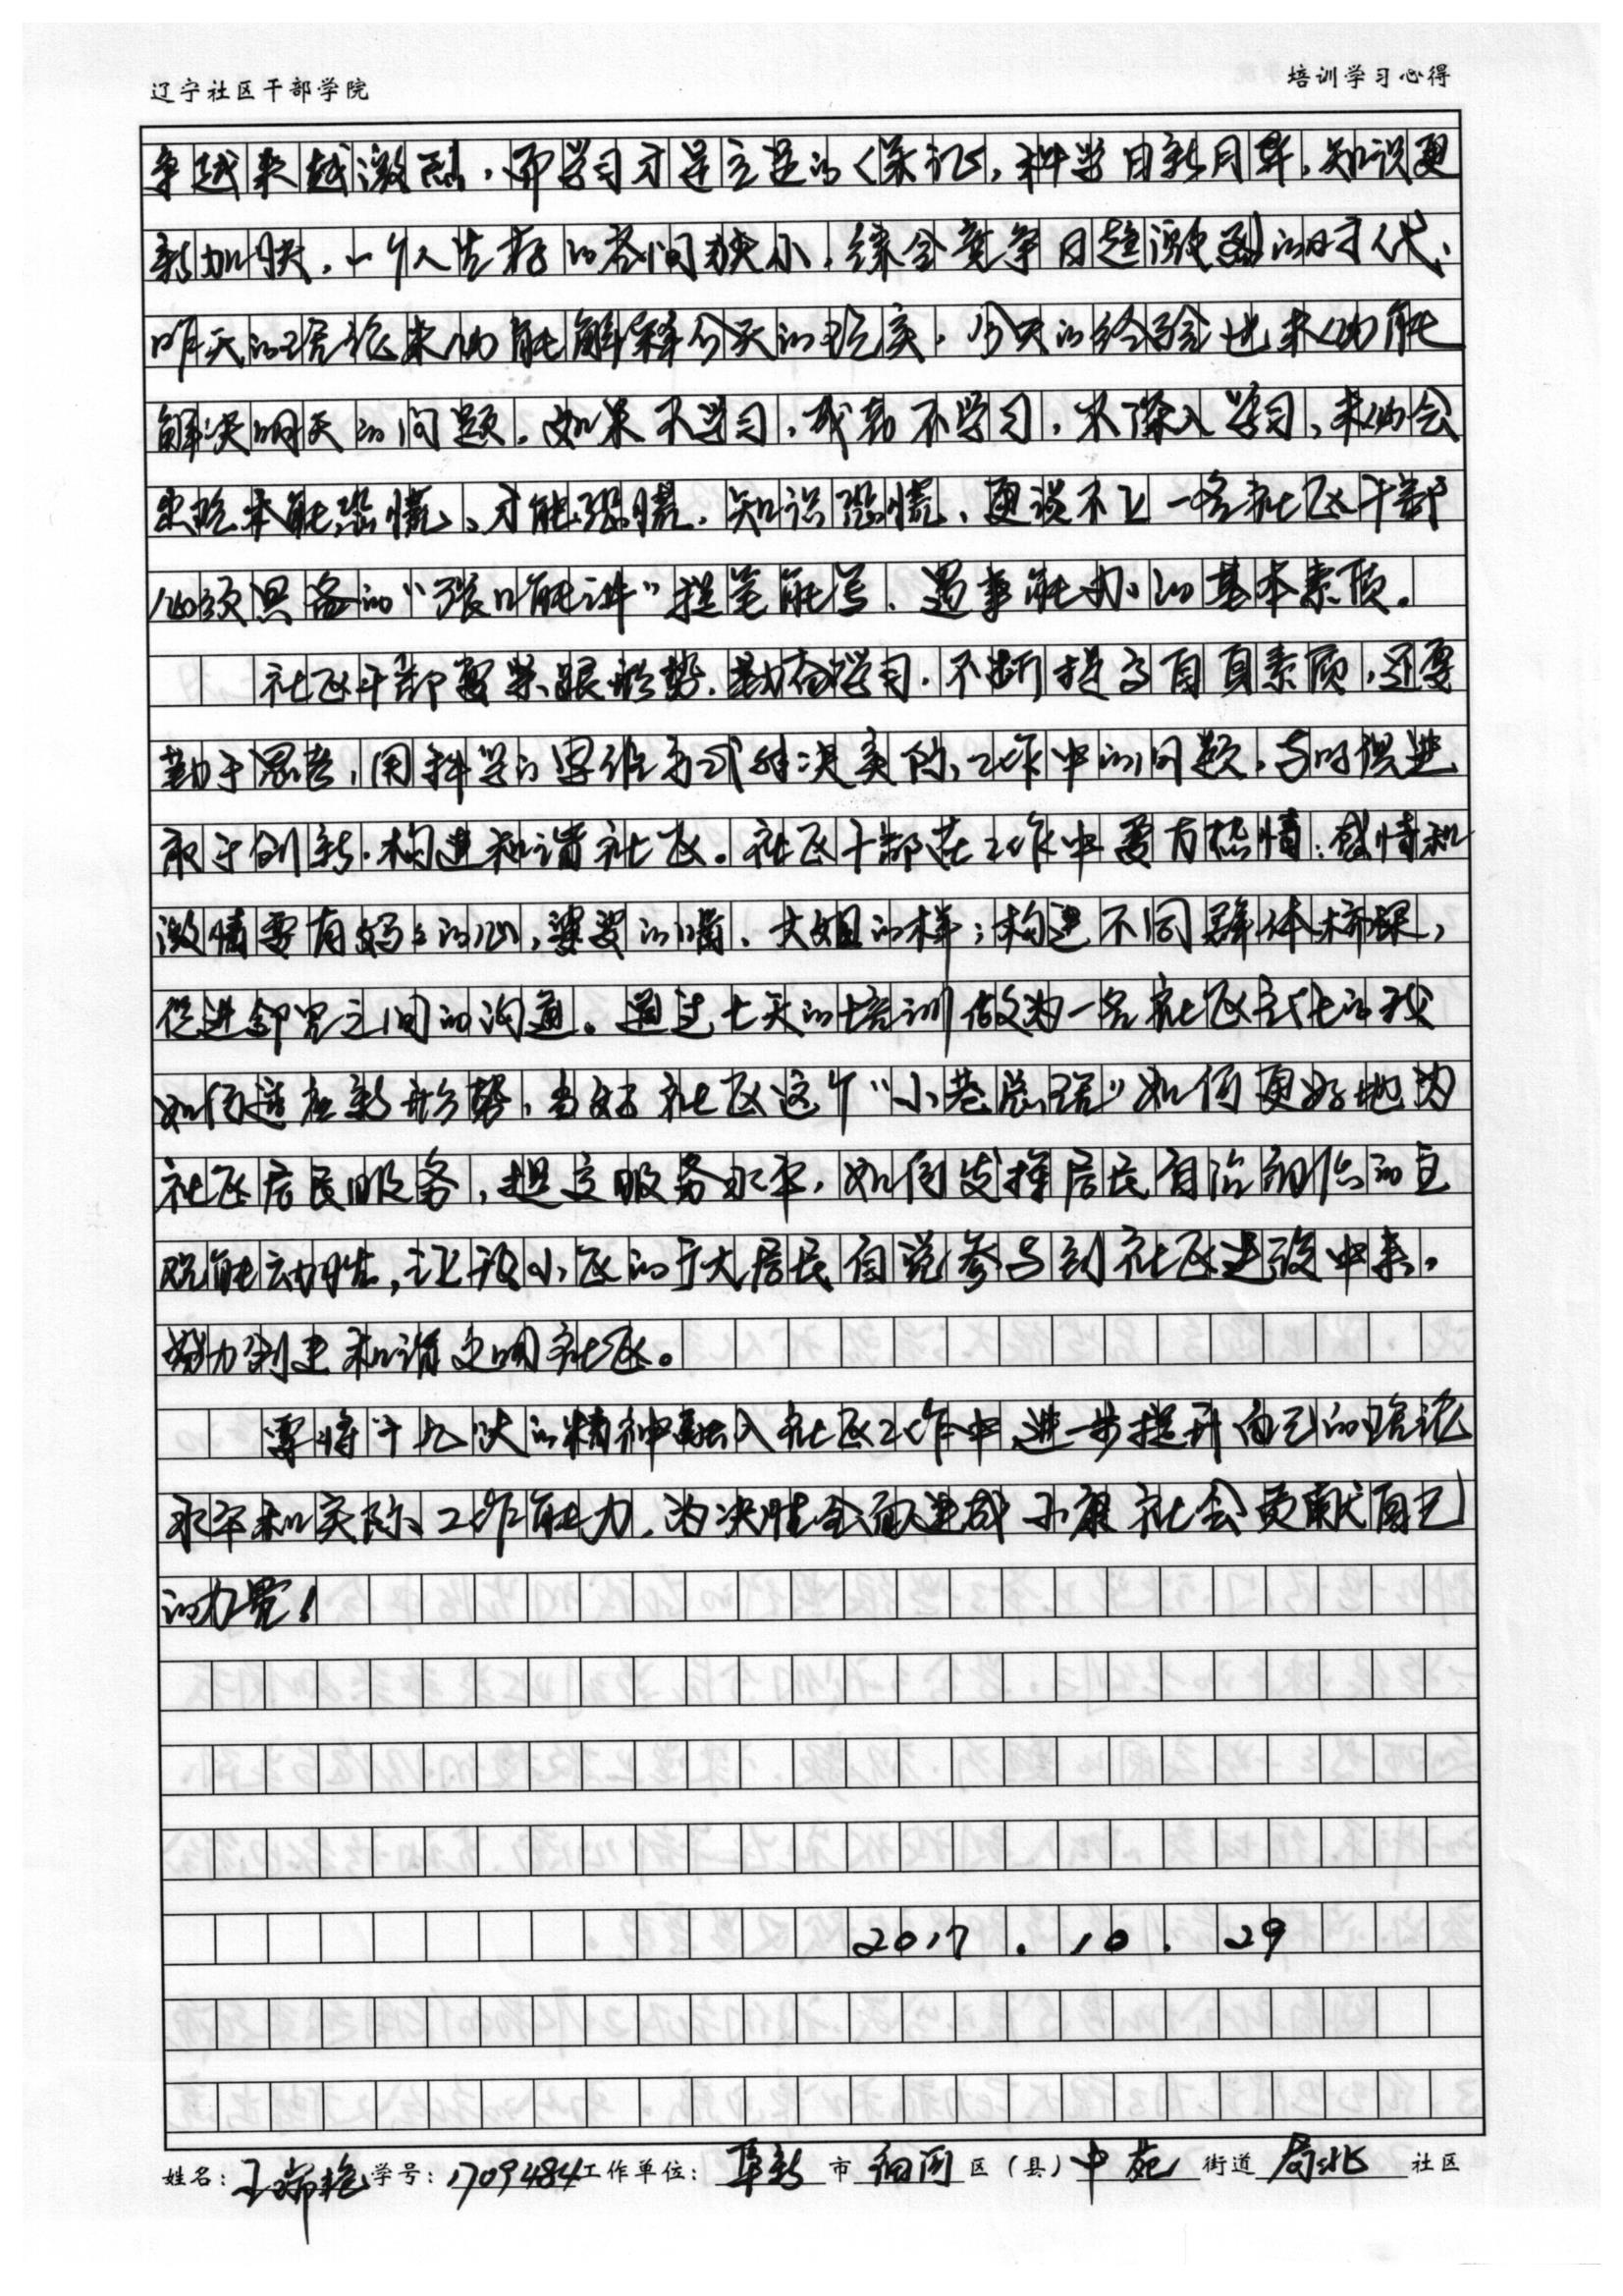 辽宁社区干部学院
培训学习心得
争越来越激烈，而学习才是立足的保证，科学日新月异，知识更
新加快，一个人生存的空间狭小，综合竞争日趋激烈的时代、
昨天的理论未必能解释今天的现实，今天的经验也未必能
解决明天的问题，如果不学习，或者不学习，不深入学习，未必会
出现本能恐慌、才能恐慌、知识恐慌、更谈不上一名社区干部
必须具备的“张口能讲”提笔能写、遇事能办的基本素质。
社区干部要紧跟形势，勤奋学习，不断提高自身素质，还要
勤于思考，用科学的思维方式解决实际工作中的问题，与时俱进
敢于创新，构建和谐社区。社区干部在工作中要有热情；感情和
激情要有妈妈的心，婆婆的嘴、大姐的样；构建不同群体桥梁，
促进邻里之间的沟通。通过七天的培训做为一名社区主任的我
如何适应新形势，当好社区这个“小巷总理”如何更好地为
社区居民服务，提高服务水平，如何发挥居民自治的主
观能动性，让小区的广大居民自觉参与到社区建设中来，
努力创建和谐文明社区。
要将十九大的精神融入社区工作中进一步提升自己的理论
水平和实际工作能力，为决胜全面建成小康社会贡献自己
的力量！
2017.10.29
姓名：王瑞艳 学号：1709484 工作单位：阜新市细河区（县）中苑街道 北社区